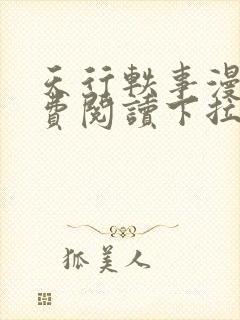 天行軼事漫
費閱讀下拉
狐美人